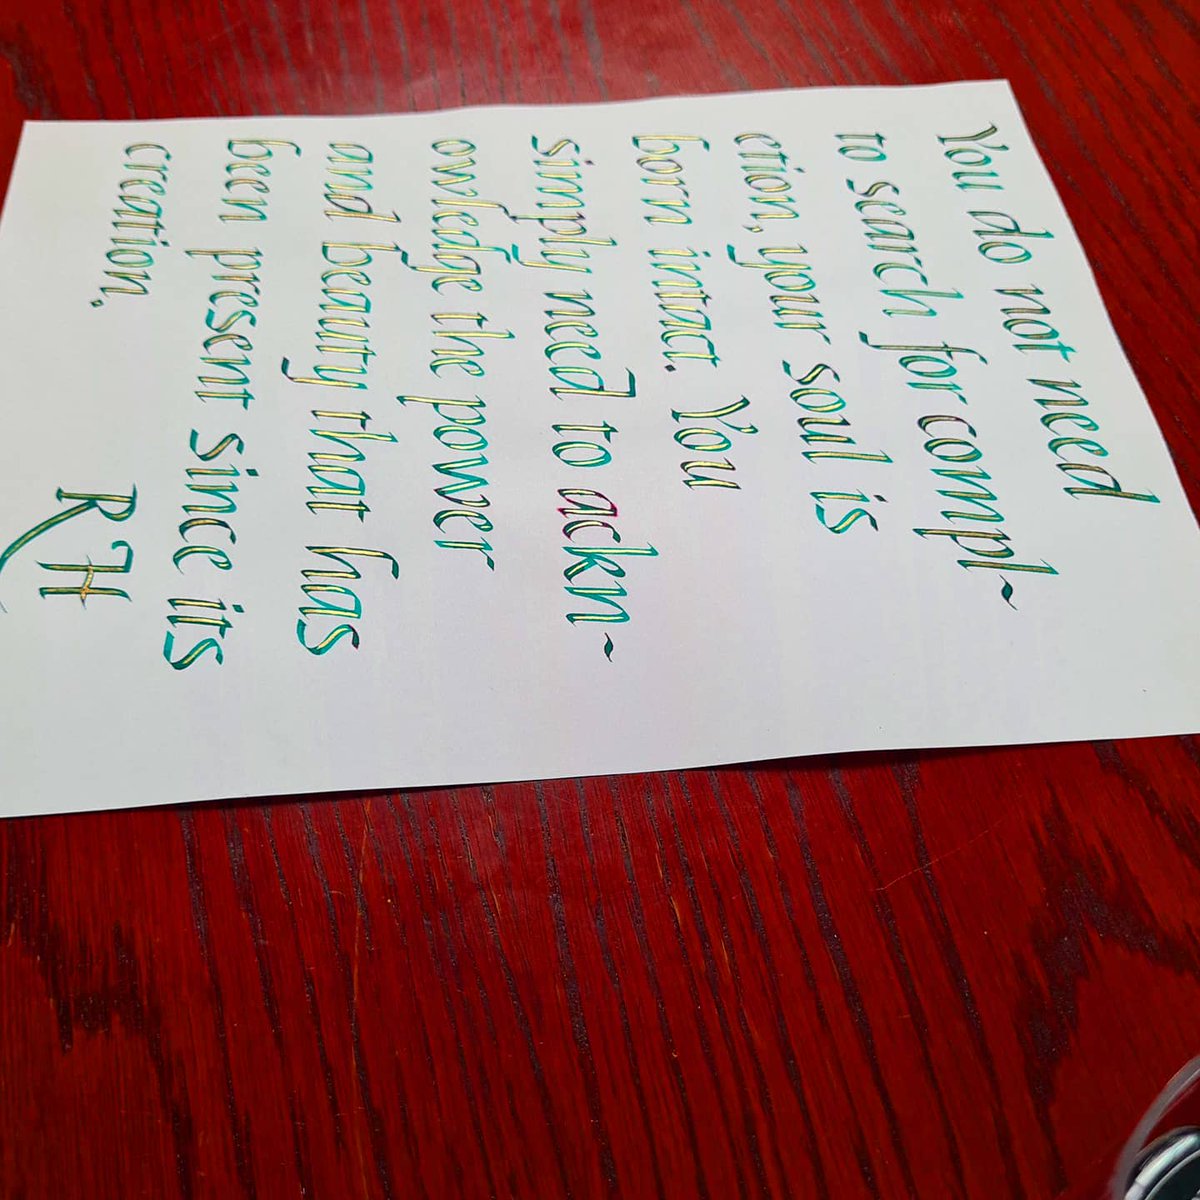 You do not need
to search for compl~
ction, your soul is
born intact. You
simply need to ackn~
owledge the power
and beauty that has
been present since its
creation.
RH